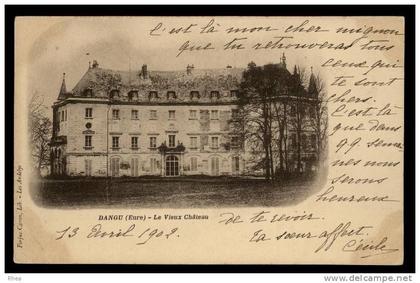 C'est là mon cher mignon
que tu retrouveras tous
ceux qui
te sont
chers.
C'est que dans
99 semai
nous
serons
heureux
de te revoir.
DANGU (Eure) - Le Vieux Château
13 Avril 1902.
Ta sœur affect.
Cécile
Lib. - Les Andelys
www.delcampe.net